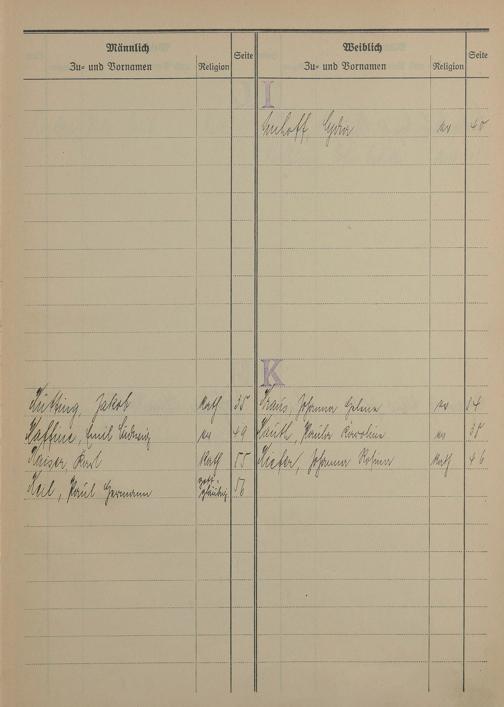 Männlich
Zu- und Vornamen
Religion
Seite
Weiblich
Zu- und Vornamen
Religion
Seite
I
Imhoff, Lydia ev 40
K
Kütting, Jakob Kath 35
Kaffine, Emil Ludwig ev 49
Kaiser, Karl Kath 55
Keil, Paul Hermann gottgläubig 56
Kraus, Johanna Helene ev 14
Kauth, Paula Karoline ev 38
Kiefer, Johanna Rosina Kath 46